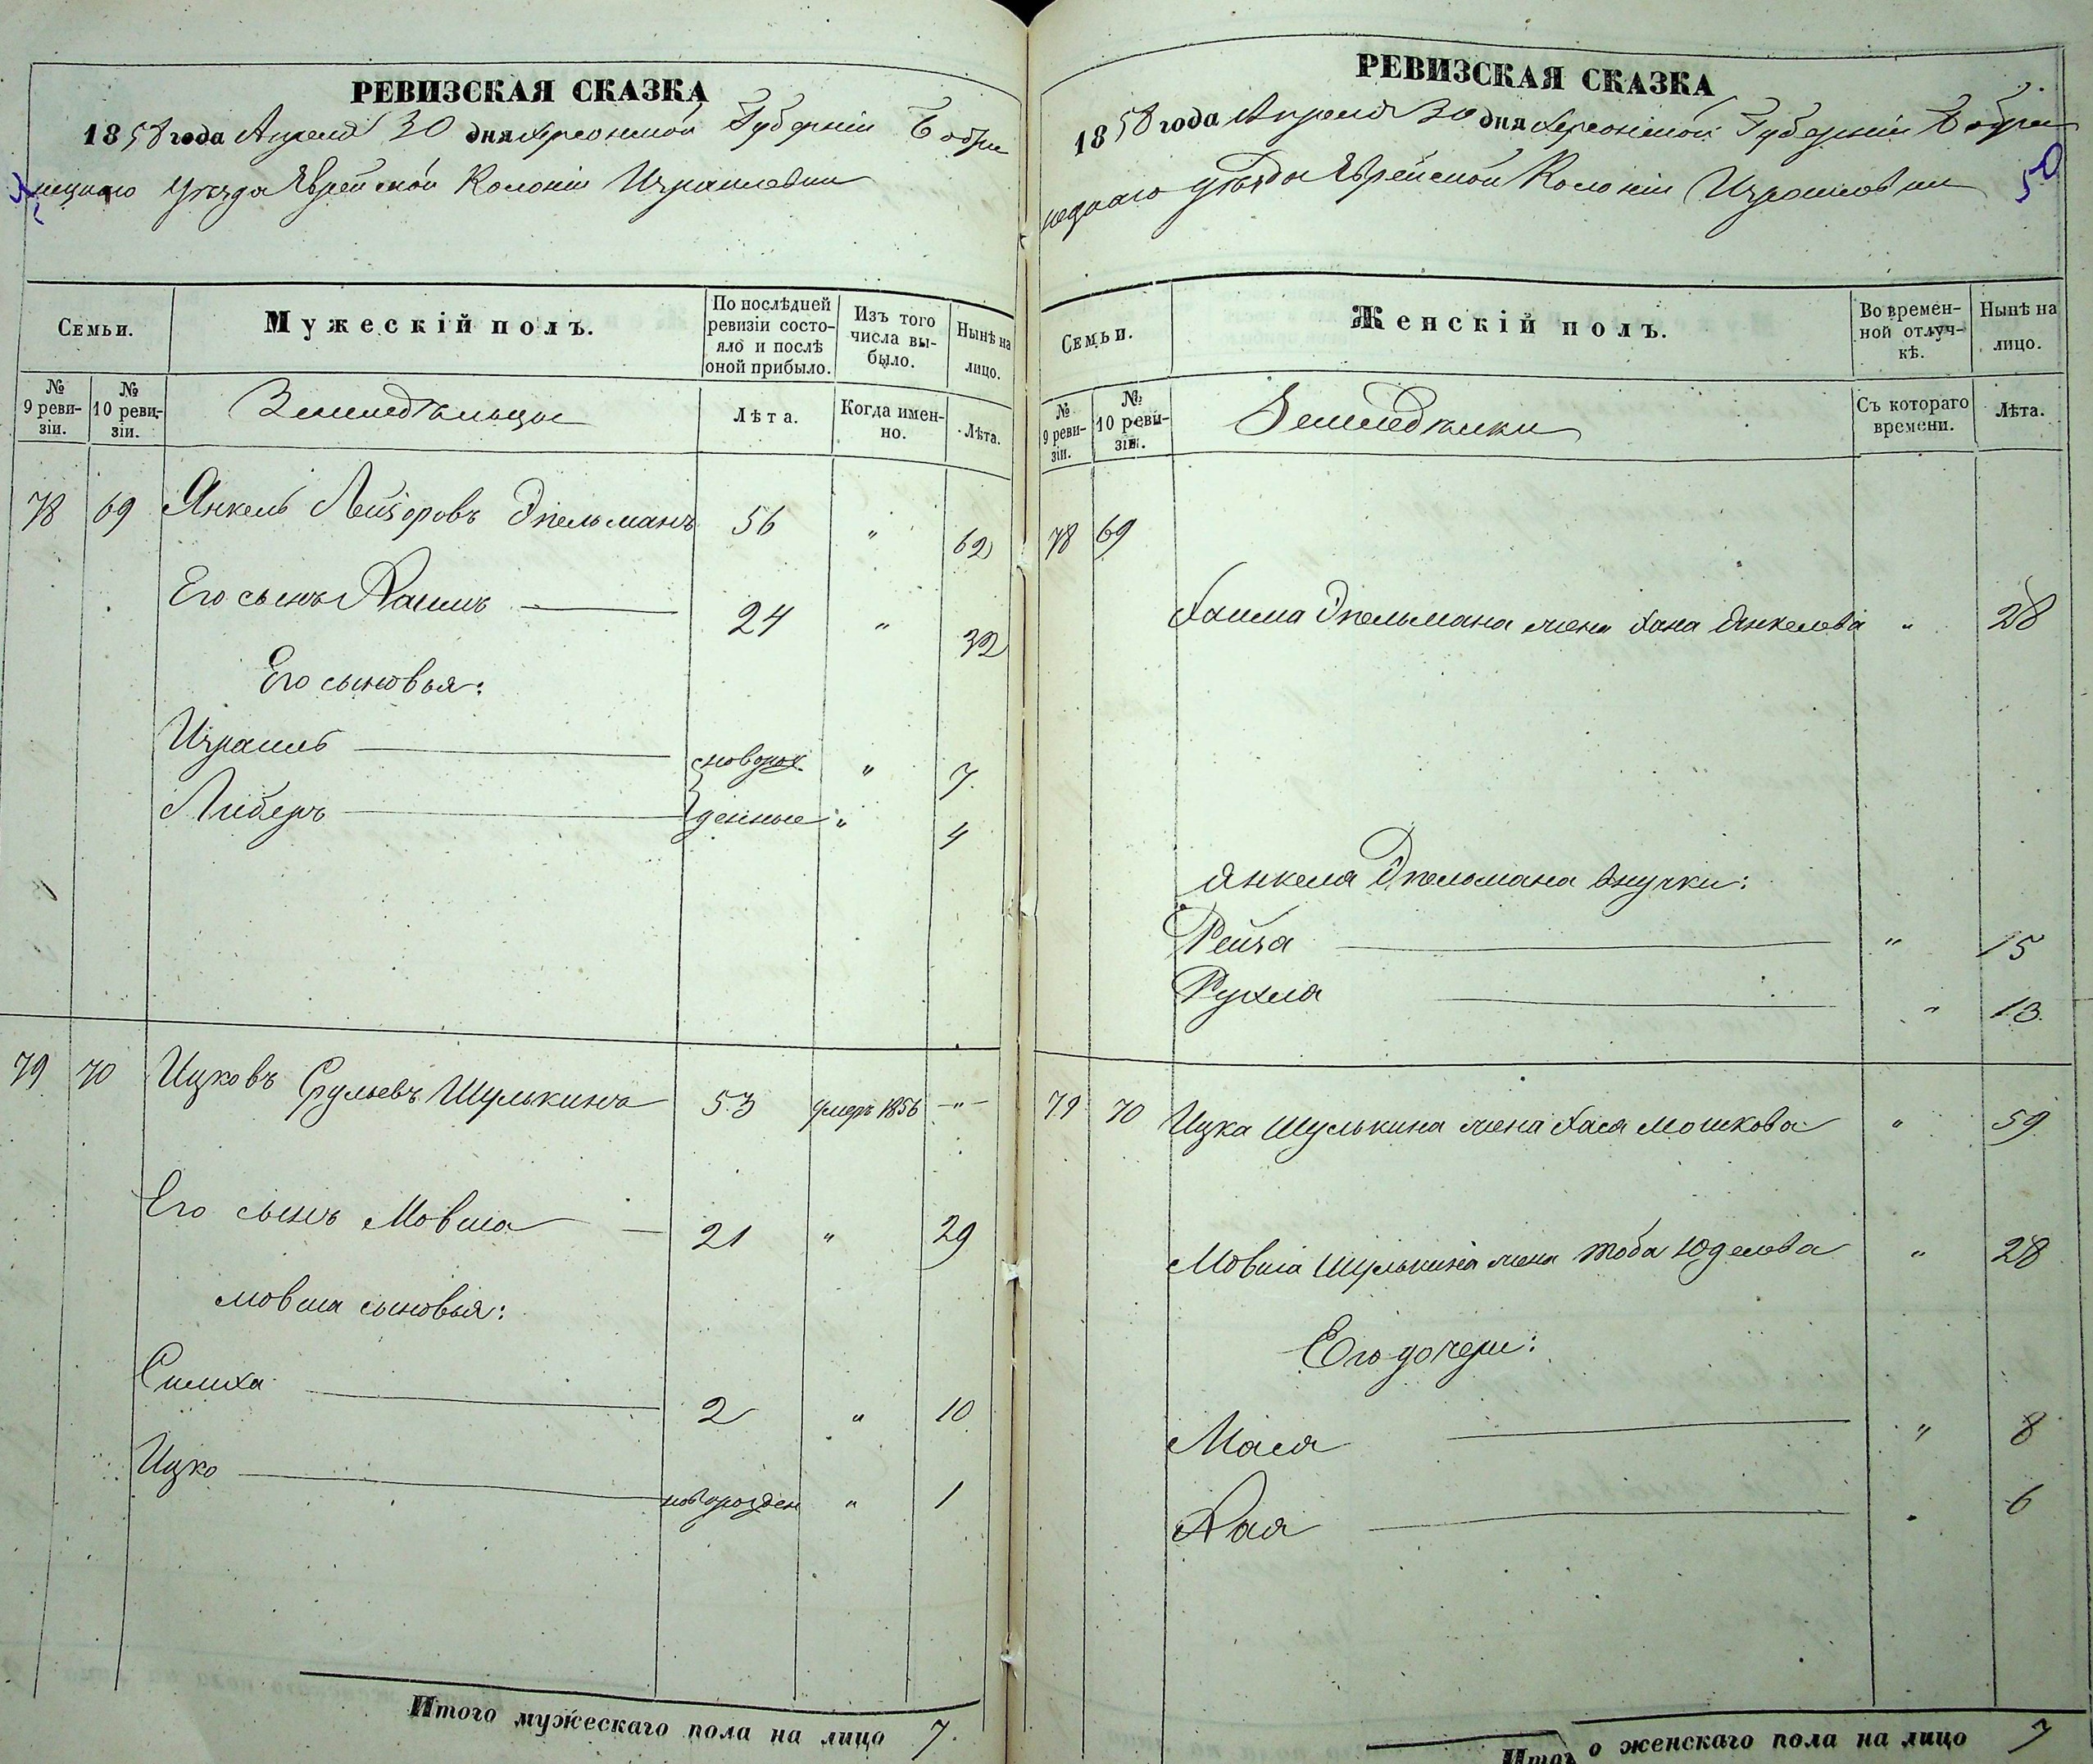 РЕВИЗСКАЯ СКАЗКА
1858 года Апреля 30 дня Херсонской Губерніи Бобри
нецкаго Уѣзда Еврейской Колоніи Израилевки
Семьи.
Мужескій полъ.
По послѣдней ревизіи состояло и послѣ оной прибыло.
Изъ того числа выбыло.
Нынѣ на лицо.
№ 9 ревизіи.
№ 10 ревизіи.
Земледѣльцы
Лѣта.
Когда именно.
Лѣта.
78 69 Янкель Лейзоровъ Эпельманъ 56 " 62
Его сынъ Хаимъ 24 " 32
Его сыновья:
Израиль новорож " 7
Либеръ денные " 4
79 70 Ицковъ Срульевъ Шулькинъ 53 умеръ 1856 -"-
Его сынъ Мовша 21 " 29
Мовши сыновья:
Симха 2 " 10
Ицко новорожден " 1
Итого мужескаго пола на лицо 7.
РЕВИЗСКАЯ СКАЗКА
1858 года Апреля 30 дня Херсонской Губерніи Бобри
нецкаго Уѣзда Еврейской Колоніи Израилевки
50
Семьи.
Женскій полъ.
Во временной отлучкѣ.
Нынѣ на лицо.
№ 9 ревизіи.
№ 10 ревизіи.
Съ котораго времени.
Лѣта.
78 69
Хаима Эпельмана жена Хана Янкелева " 28
Янкеля Эпельмана внучки:
Рейза " 15
Рухля " 13
79 70 Ицка Шулькина жена Хася Мошкова " 59
Мовши Шулькина жена Тоба Юделева " 28
Его дочери:
Мася " 8
Хая " 6
Итого женскаго пола на лицо 7